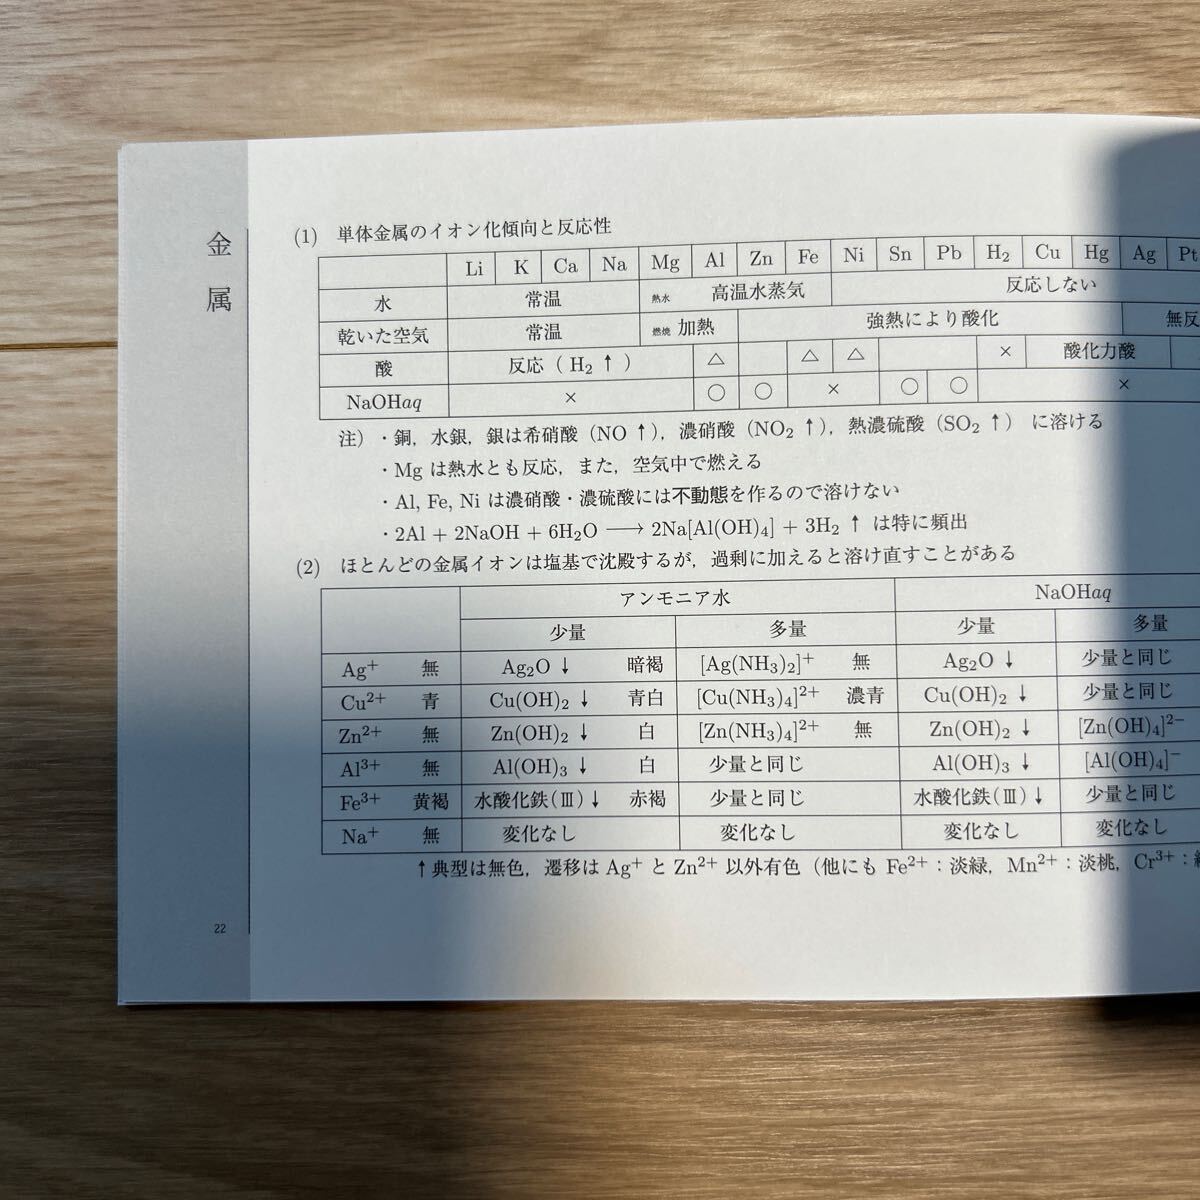 金属
(1) 単体金属のイオン化傾向と反応性
Li K Ca Na Mg Al Zn Fe Ni Sn Pb H₂ Cu Hg Ag Pt
水 常温 熱水 高温水蒸気 反応しない
乾いた空気 常温 燃焼 加熱 強熱により酸化 無反
酸 反応 ( H₂ ↑ ) △ △ △ × 酸化力酸
NaOHaq × ○ ○ × ○ ○ ×
注) ・銅, 水銀, 銀は希硝酸 (NO ↑), 濃硝酸 (NO₂ ↑), 熱濃硫酸 (SO₂ ↑) に溶ける
・Mg は熱水とも反応, また, 空気中で燃える
・Al, Fe, Ni は濃硝酸・濃硫酸には不動態を作るので溶けない
・2Al + 2NaOH + 6H₂O ⟶ 2Na[Al(OH)₄] + 3H₂ ↑ は特に頻出
(2) ほとんどの金属イオンは塩基で沈殿するが, 過剰に加えると溶け直すことがある
アンモニア水 NaOHaq
少量 多量 少量 多量
Ag⁺ 無 Ag₂O ↓ 暗褐 [Ag(NH₃)₂]⁺ 無 Ag₂O ↓ 少量と同じ
Cu²⁺ 青 Cu(OH)₂ ↓ 青白 [Cu(NH₃)₄]²⁺ 濃青 Cu(OH)₂ ↓ 少量と同じ
Zn²⁺ 無 Zn(OH)₂ ↓ 白 [Zn(NH₃)₄]²⁺ 無 Zn(OH)₂ ↓ [Zn(OH)₄]²⁻
Al³⁺ 無 Al(OH)₃ ↓ 白 少量と同じ Al(OH)₃ ↓ [Al(OH)₄]⁻
Fe³⁺ 黄褐 水酸化鉄(Ⅲ)↓ 赤褐 少量と同じ 水酸化鉄(Ⅲ)↓ 少量と同じ
Na⁺ 無 変化なし 変化なし 変化なし 変化なし
↑典型は無色, 遷移は Ag⁺ と Zn²⁺ 以外有色 (他にも Fe²⁺ : 淡緑, Mn²⁺ : 淡桃, Cr³⁺ :
22